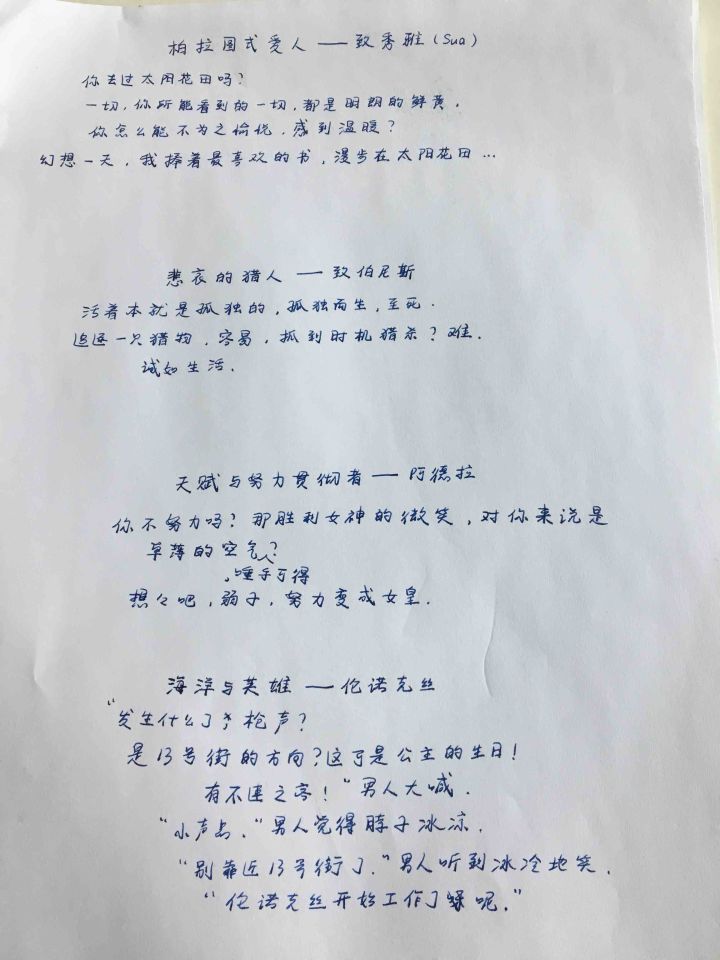 柏拉图式爱人——致秀雅(Sua)
你去过太阳花田吗?
一切,你所能看到的一切,都是明朗的鲜黄,
你怎么能不为之愉悦,感到温暖?
幻想一天,我捧着最喜欢的书,漫步在太阳花田…
悲哀的猎人——致伯尼斯
活着本就是孤独的,孤独而生,至死.
追逐一只猎物,容易,抓到时机猎杀?难.
诚如生活.
天赋与努力贯彻者——阿德拉
你不努力吗?那胜利女神的微笑,对你来说是
草薄的空气?
,唾手可得
想々吧,弱子,努力变成女皇.
海洋与英雄——伦诺克丝
“发生什么了,枪声?
是13号街的方向?这可是公主的生日!
有不速之客!”男人大喊.
“小声点.”男人觉得脖子冰凉.
“别靠近13号街了.”男人听到冰冷地笑.
“伦诺克丝开始工作了呢.”